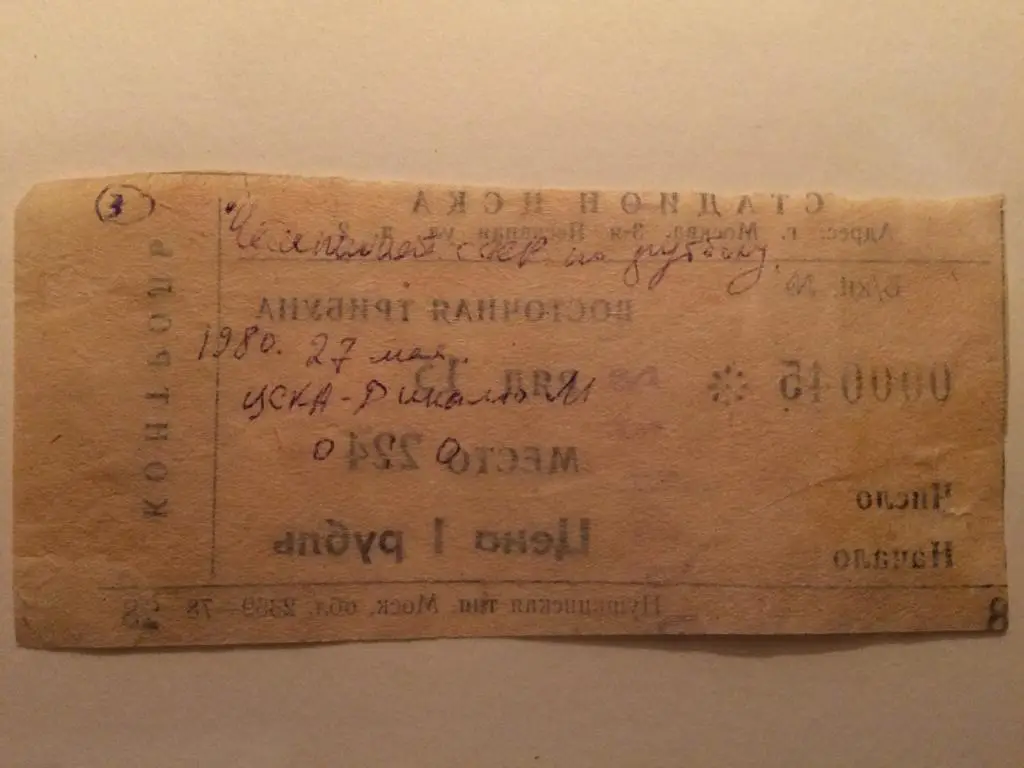 3
СТАДИОН ЦСКА
Адрес: г. Москва, 3-я Песчаная ул., д. 2
Чемпионат СССР по футболу.
Б/хп. №
ВОСТОЧНАЯ ТРИБУНА
КОНТРОЛЬ
1980. 27 мая.
000045
ряд 13
ЦСКА-Динамо М
0 : 0
МЕСТО 224
Число
Цена 1 рубль
Начало
Пушкинская тип. Моск. обл. 2369—78
8